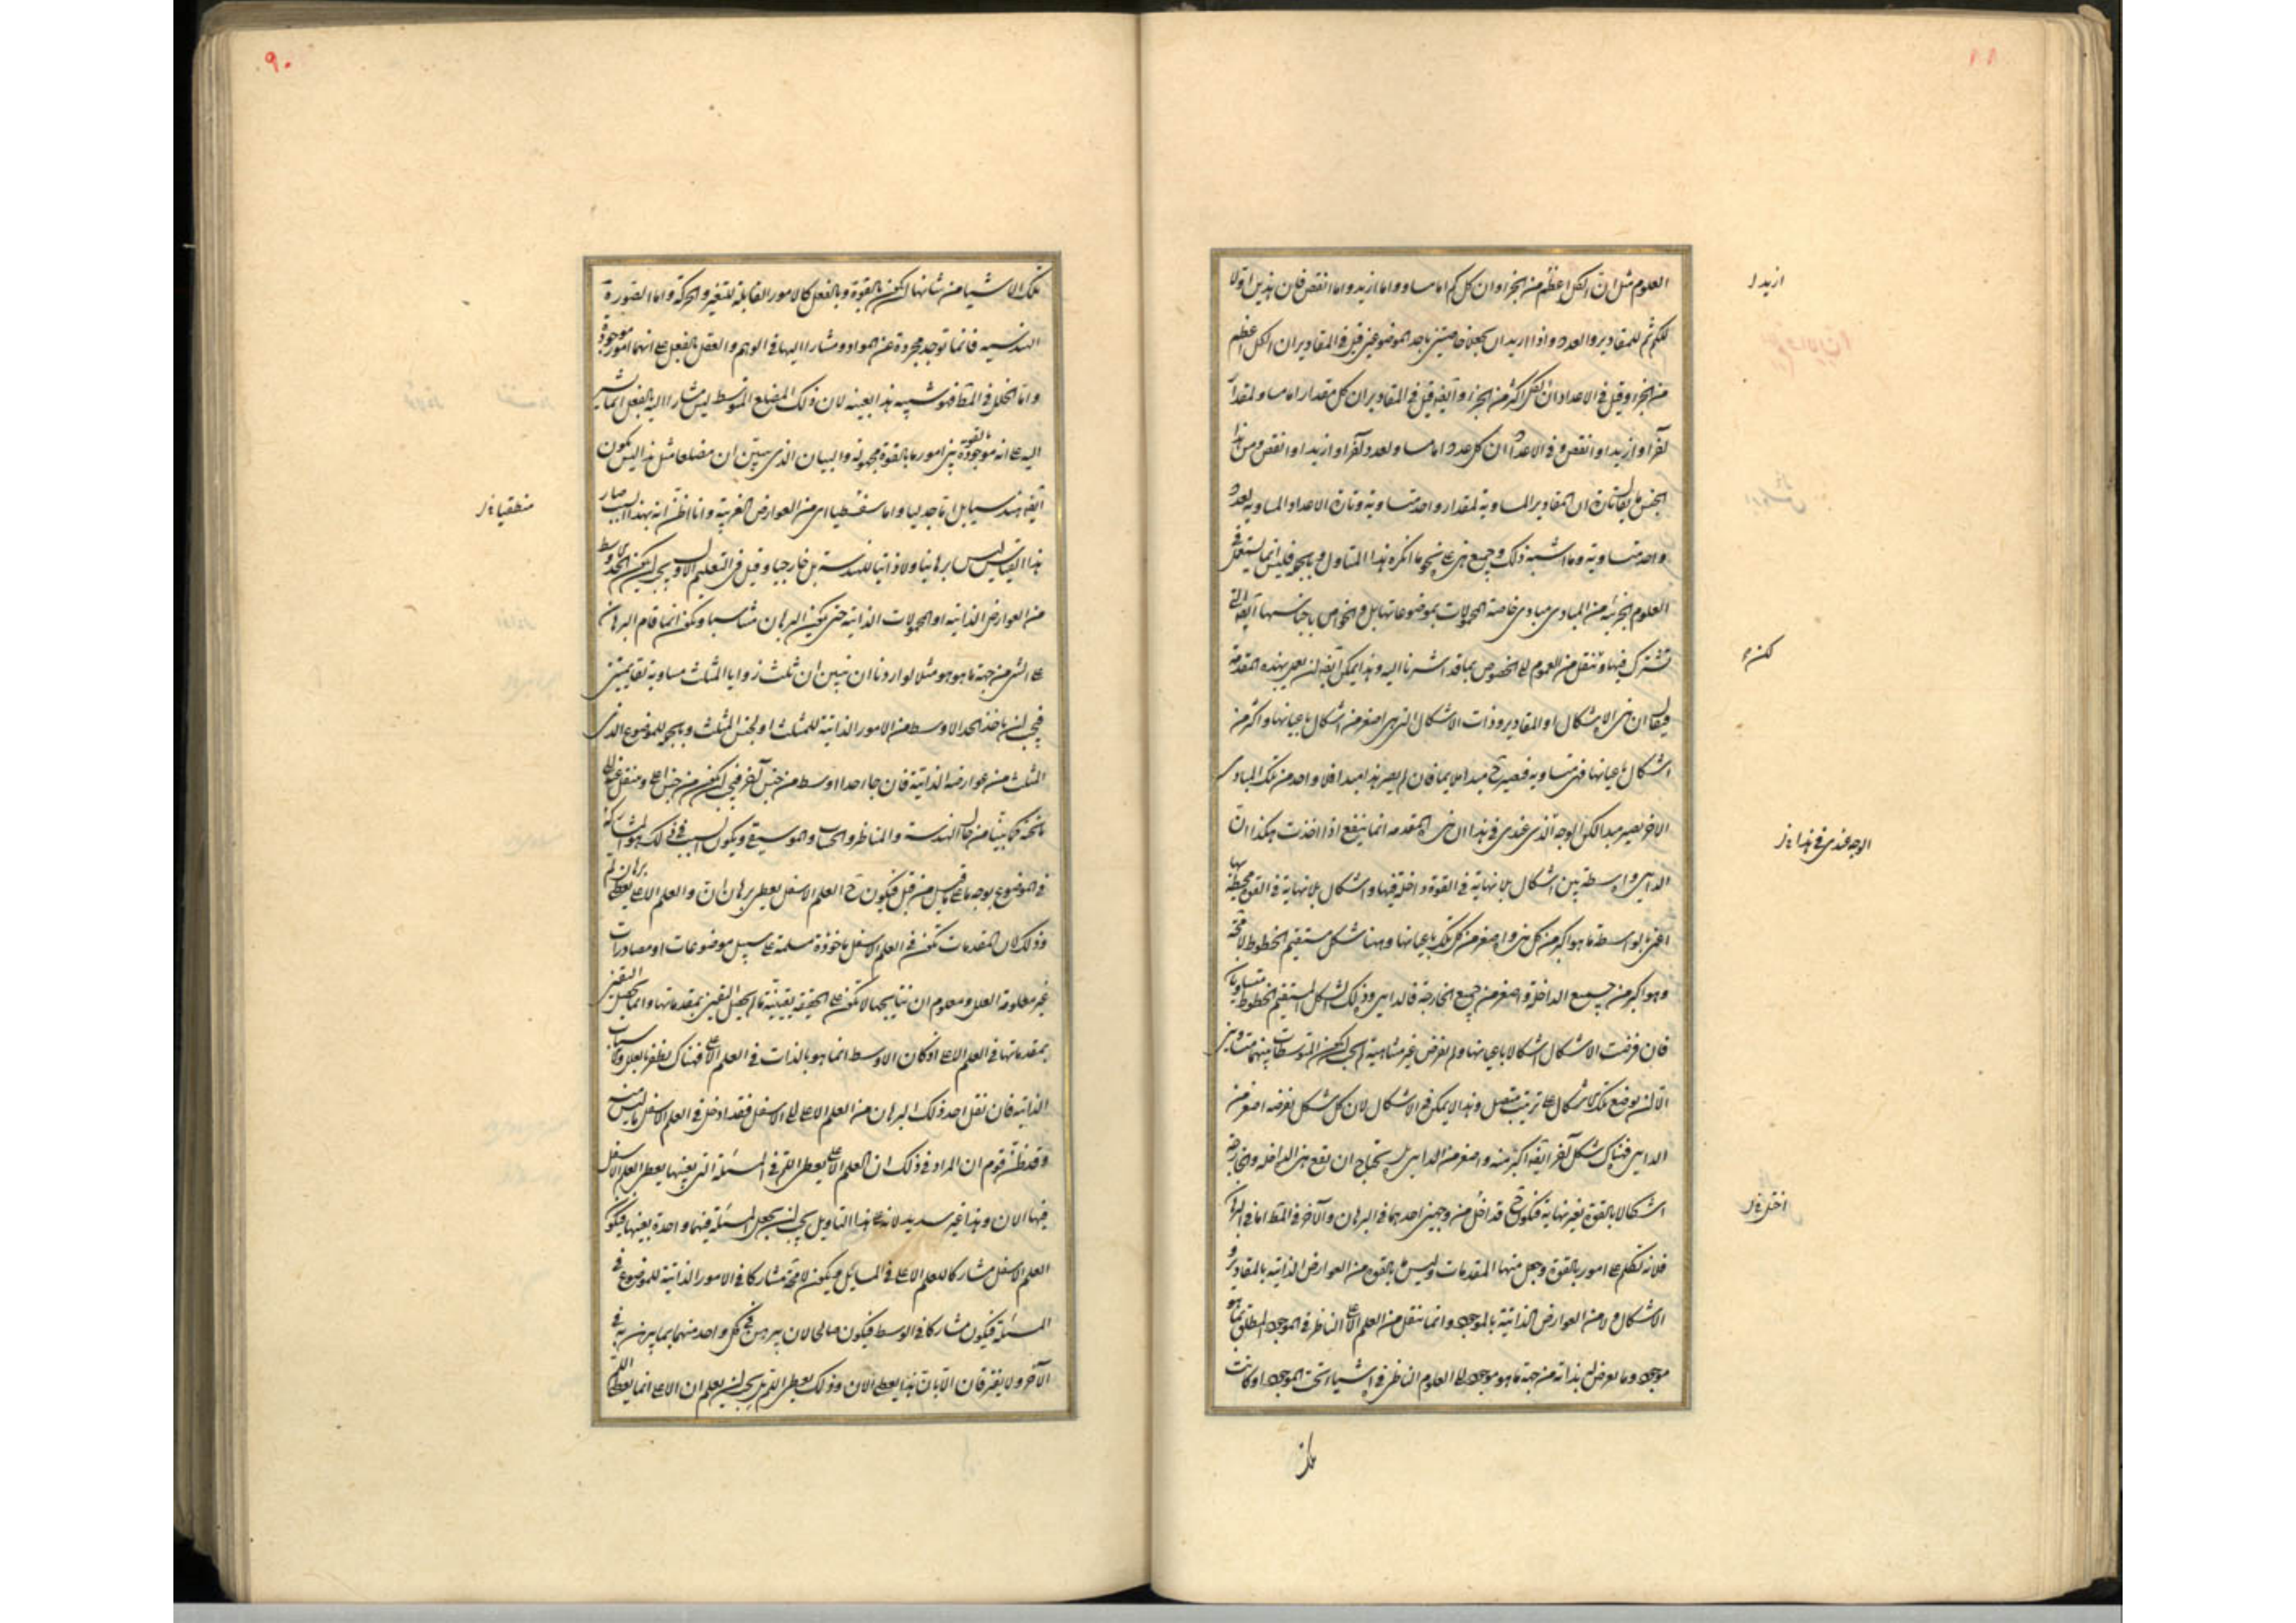 العلوم مثل ان الكل اعظم من الجزء وان كل كم اما مساو واما ازيد واما انقص فان هذين اولا
للكم ثم للمقادير والعدد واذا اريد ان يجعلا خاصيتين باحد الموضوعين قيل في المقادير ان الكل اعظم
من الجزء وقيل في الاعداد ان الكل اكثر من الجزء وايضا قيل في المقادير ان كل مقدار اما مساو لمقدار
آخر او ازيد او انقص وفي الاعداد ان كل عدد اما مساو لعدد آخر او ازيد او انقص ومن هذا
الجنس ما يقال تارة ان المقادير المساوية لمقدار واحد متساوية وتارة الاعداد المساوية لعدد
واحد متساوية وما اشبه ذلك وجميع هذه على نحو ما انكره هذا المتاول وبالجملة فليس انما يستعمل في
العلوم الجزئية من المبادي مبادي خاصة المحمولات بموضوعاتها بل والخواص باجناسها ايضا التي
تشترك فيها وتنقل من العموم الى الخصوص بما قد اشرنا اليه وهذا يمكن ايضا ان يعمل بهذه المقدمة
فيقال ان هذه الاشكال او المقادير وذات الاشكال التي هي اصغر من اشكال باعيانها واكبر من
اشكال باعيانها فهي متساوية فتصير ح مبدا ملايما فان لم يصر هذا مبدا فلا واحد من تلك المبادي
الاخر يصير مبدا لكن الوجه الذي عندي في هذا ان هذه المقدمة انما ينتفع اذا اخذت هكذا ان
الدايرة واسطة بين اشكال بلا نهاية في القوة داخلة فيها واشكال بلا نهاية في القوة محيطة بها
اعني بالواسطة ما هو اكبر من كل هذه واصغر من كل تلك باعيانها وههنا شكل مستقيم الخطوط لا محة
وهو اكبر من جميع الداخلة واصغر من جميع الخارجة فالدايرة وذلك الشكل المستقيم الخطوط متساويان
فان فرضت الاشكال اشكالا باعيانها ولم تفرض غير متناهية لم يجب ان يكون المتوسطات بينهما متساويين
الا ان يوضع تلك الاشكال على ترتيب متصل وهذا لا يمكن في الاشكال لان كل شكل نفرضه اصغر من
الدايرة فهناك شكل آخر ايضا اكبر منه واصغر من الدايرة بل يحتاج ان تقع هذه الداخلة والخارجة
اشكالا بالقوة بغير نهاية فيكون ح قد اخل من وجهين احدهما في البرهان والآخر في المط اما في البرهان
فلانه تكلم على امور بالقوة وجعل منها المقدمات وليس ما بالقوة من العوارض الذاتية بالمقادير و
الاشكال ولا من العوارض الذاتية بالموجود وانما تنقل من العلم الاعلى الناظر في الموجود المطلق بما هو
موجود وما يعرض له بذاته من جهة ما هو موجود الى العلوم الناظرة في اشياء تحت الموجود او كانت
ازيد ل
الوجه عندي في هذا ن ل
اخل ن ل
تلك
٩٠
تلك الاشياء من شانها ان يكون بالقوة وبالفعل كالامور القابلة للتغير والحركة واما الصورة
الهندسية فانما توجد مجردة عن المواد ومشارا اليها في الوهم والعقل بالفعل على انها امور موجودة
واما الخلل في المط فهو شبيه بهذا بعينه لان ذلك المضلع المتوسط ليس مشارا اليه بالفعل انما يشير
اليه على انه موجود بالقوة بين امور ما بالقوة مجهولة والبيان الذي يبين ان مضلعا مثل هذا ليس يكون
ايضا هندسيا بل اما جدليا واما سفسطيا اي من العوارض الغريبة وانا اظن انه بهذا السبب صار
هذا القياس ليس برهانيا ولا ذاتيا للهندسة بل خارجيا وقيل في التعليم الاول يجب ان يكون الحد الاوسط
من العوارض الذاتية او المحمولات الذاتية حتى يكون البرهان مناسبا ويكون انما قام البرهان
على الشي من جهة ما هو هو مثلا لو اردنا ان نبين ان ثلث زوايا المثلث مساوية لقايمتين
فيجب ان ياخذ الحد الاوسط من الامور الذاتية للمثلث او لجنس المثلث وبالجملة للموضوع الذي
المثلث من عوارضه الذاتية فان جاء حد اوسط من جنس آخر فيجب ان يكون من جنس اعلى ومنقل عنه الى
ما تحته كما بينا من حال الهندسة والمناظر والحساب والموسيقى ويكون السبب في ذلك هو المشاركة
في الموضوع بوجه ما على ما قيل من قبل فيكون ح العلم الاسفل يعطي برهان ان والعلم الاعلى يعطي برهان لم
وذلك لان المقدمات تكون في العلم الاسفل ماخوذة مسلمة على سبيل موضوعات او مصادرات
غير معلومة العلل ومعلوم ان نتايجها لا تكون على الحقيقة يقينية ما لم يحصل اليقين بمقدماتها وانما يحصل اليقين
بمقدماتها في العلم الاعلى اذ كان الاوسط انما هو بالذات في العلم الاعلى فهناك يظفر بالعلل والاسباب
الذاتية فان نقل احد ذلك البرهان من العلم الاعلى الى الاسفل فقد ادخل في العلم الاسفل ما ليس منه
وقد ظن قوم ان المراد في ذلك ان العلم الاعلى يعطي اللم في المسئلة التي بعينها يعطي العلم الاسفل
فيها الان وهذا غير سديد لانه على هذا التاويل يجب ان يجعل المسئلة فيهما واحدة بعينها فيكون
العلم الاسفل مشاركا للعلم الاعلى في المسايل ويكون لا محة مشاركا في الامور الذاتية للموضوع في
المسئلة فيكون مشاركا في الوسط فيكون صالحا لان يبرهن في كل واحد منهما بما يبرهن به في
الآخر ولا يفترقان الا بان هذا يعطي الان وذلك يعطي اللم بل يجب ان يعلم ان الاعلى انما يعطي اللم
منطقيا ن ل